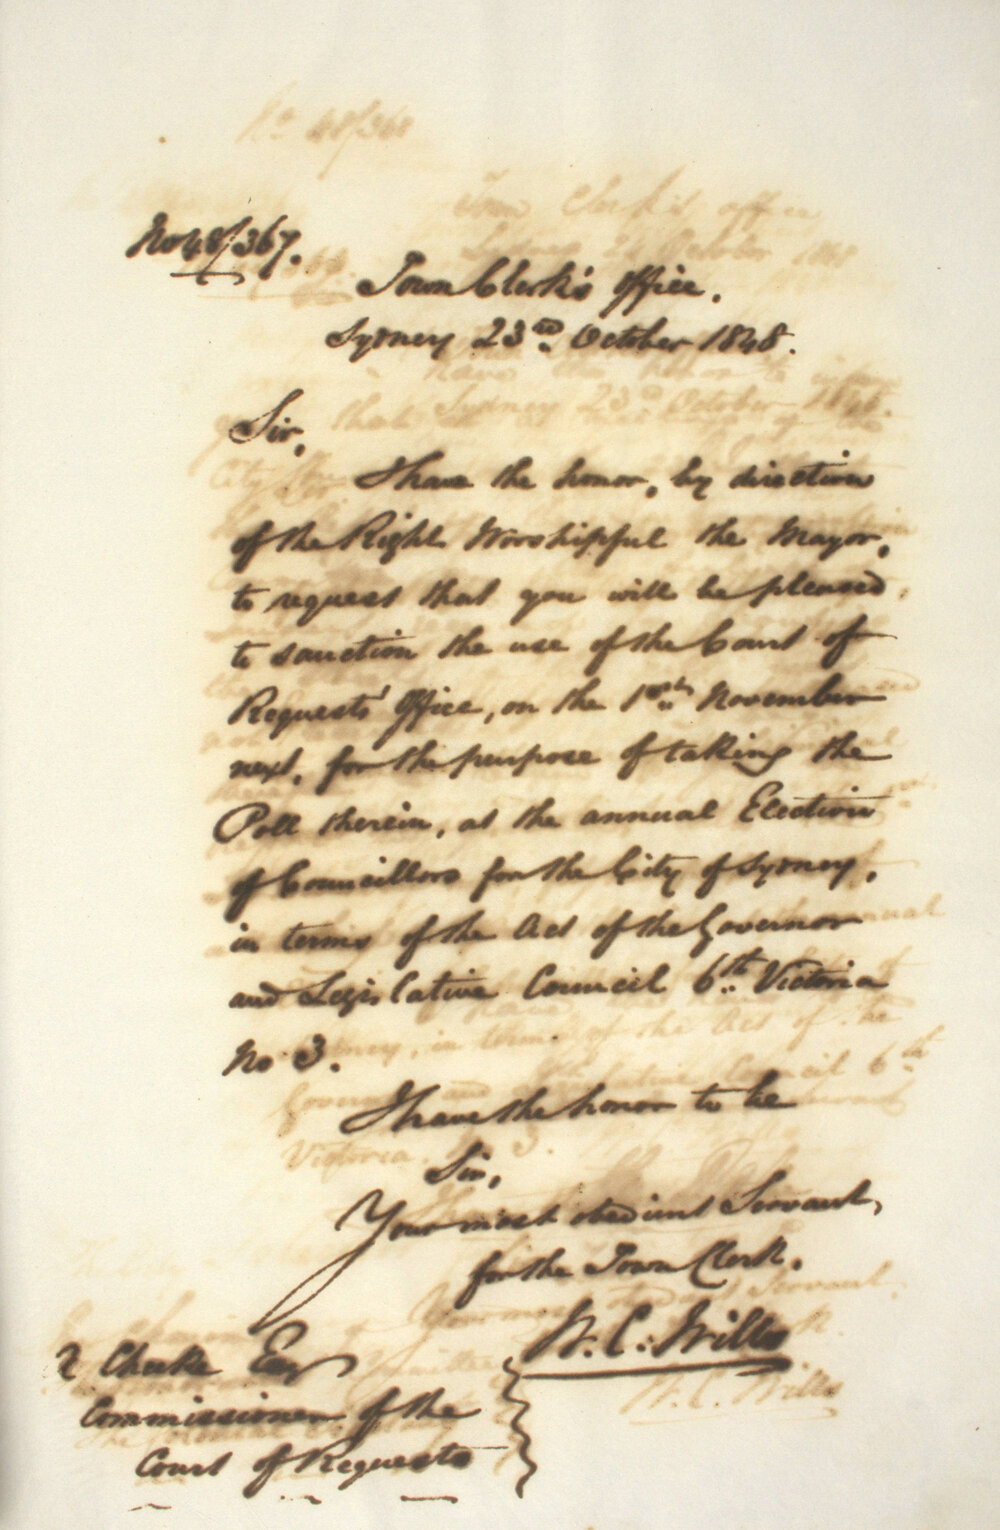 No 48/367.
Town Clerk's Office,
Sydney 23rd October 1848.
Sir,
I have the honor, by direction
of the Right Worshipful the Mayor,
to request that you will be pleased,
to sanction the use of the Court of
Requests' Office, on the 1st November
next, for the purpose of taking the
Poll therein, at the annual Election
of Councillors for the City of Sydney,
in terms of the Act of the Governor
and Legislative Council 6th Victoria
No 3.
I have the honor to be
Sir,
Your most obedient Servant,
for the Town Clerk.
W. C. Wills
Cheeke Esq
Commissioner of the
Court of Requests